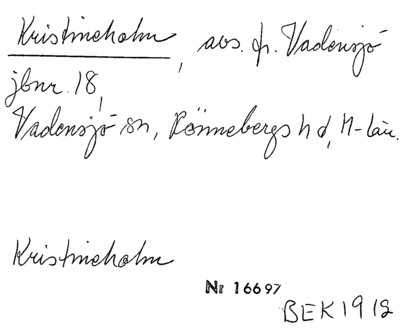 Kristineholm, avs. fr. Vadensjö
jbnr. 18,
Vadensjö sn, Rönnebergs hd, M-län.
Kristineholm
Nr 16697
BEK 1918